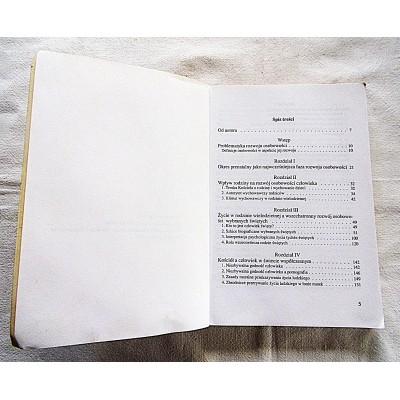 Spis treści
Od autora 7
Wstęp
Problematyka rozwoju osobowości 10
Definicje osobowości w aspekcie jej rozwoju 10
Rozdział I
Okres prenatalny jako najwcześniejsza faza rozwoju osobowości 21
Rozdział II
Wpływ rodziny na rozwój osobowości człowieka 32
1. Troska Kościoła o rodzinę i wychowanie dzieci 32
2. Autorytet wychowawczy rodziców 34
3. Klimat wychowawczy w rodzinie wielodzietnej 42
Rozdział III
Życie w rodzinie wielodzietnej a wszechstronny rozwój osobowości wybranych świętych 49
1. Kto to jest święty? 49
2. Szkice biograficzne wybranych świętych 51
3. Interpretacja psychologiczna życia tychże świętych 100
4. Rola wzorców rodzin świętych 120
Rozdział IV
Kościół a człowiek w świecie współczesnym 141
1. Niezbywalna godność człowieka 142
2. Niezbywalna godność człowieka a pornografia 146
3. Zasady moralne przekazywania życia ludzkiego 149
4. Zbrodnicze przerywanie życia ludzkiego w łonie matek 151
5